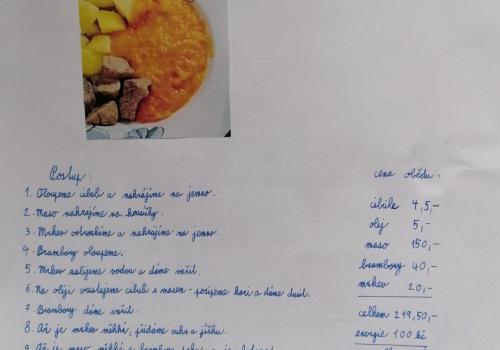 Postup:
1. Oloupeme cibuli a nakrájíme na jemno.
2. Maso nakrájíme na kousíčky.
3. Mrkev ostrouháme a nakrájíme na jemno.
4. Brambory oloupeme.
5. Mrkev zalijeme vodou a dáme vařit.
6. Na oleji orestujeme cibuli s masem - posypeme koří a dáme dusit.
7. Brambory dáme vařit.
8. Až je mrkev měkká, přidáme cukr a jíšku.
9. Až je maso měkké a brambory
cena obědu:
cibule 4,5,-
olej 5,-
maso 150,-
brambory 40,-
mrkev 20,-
celkem 219,50,-
energie 100 kč